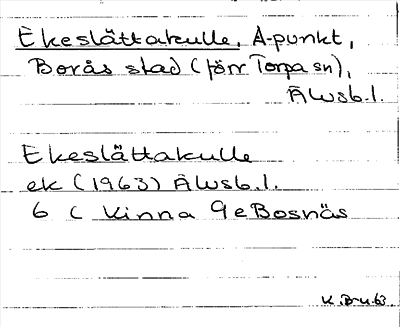 Ekeslättakulle, A-punkt,
Borås stad (förr Torpa sn),
Älvsb.l.
Ekeslättakulle
ek (1963) Älvsb.l.
6 C Kinna 9e Bosnäs
K. Bru. 63.